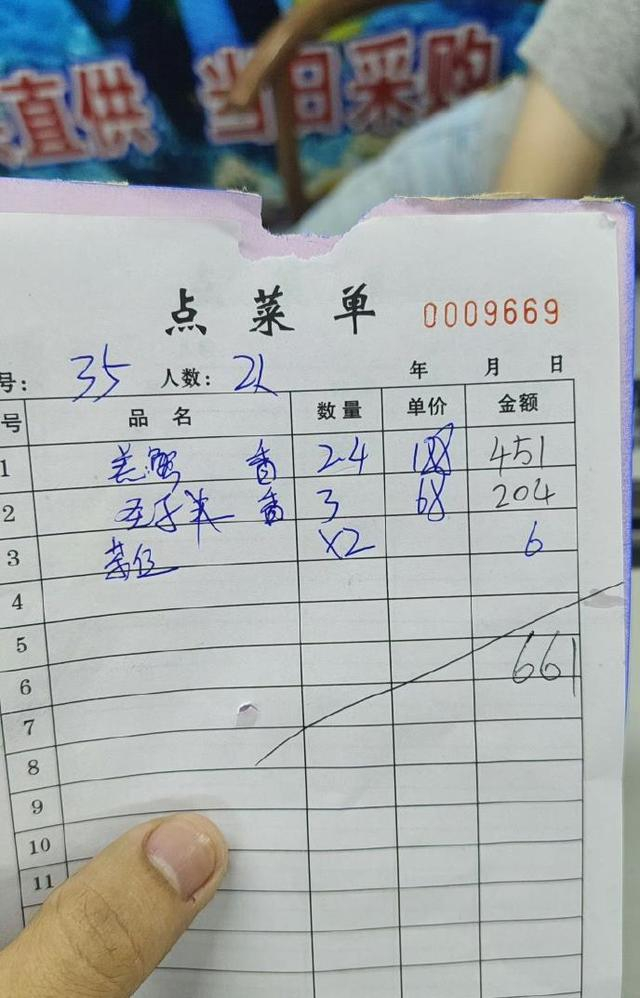 直供 当日采购
点菜单 0009669
号: 35 人数: 2人 年 月 日
号 品名 数量 单价 金额
1 羔蟹 香 2.4 188 451
2 香 3 68 204
3 茶位 X2 6
4
5
661
6
7
8
9
10
11